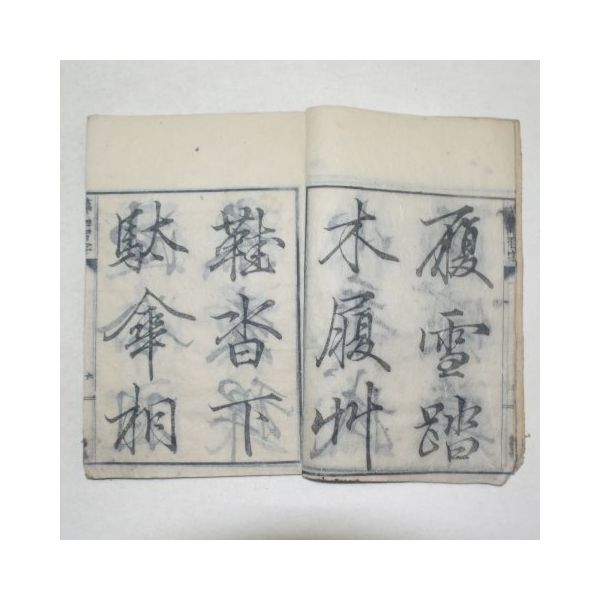 履雪踏
木履艸
鞋沓下
駄傘相